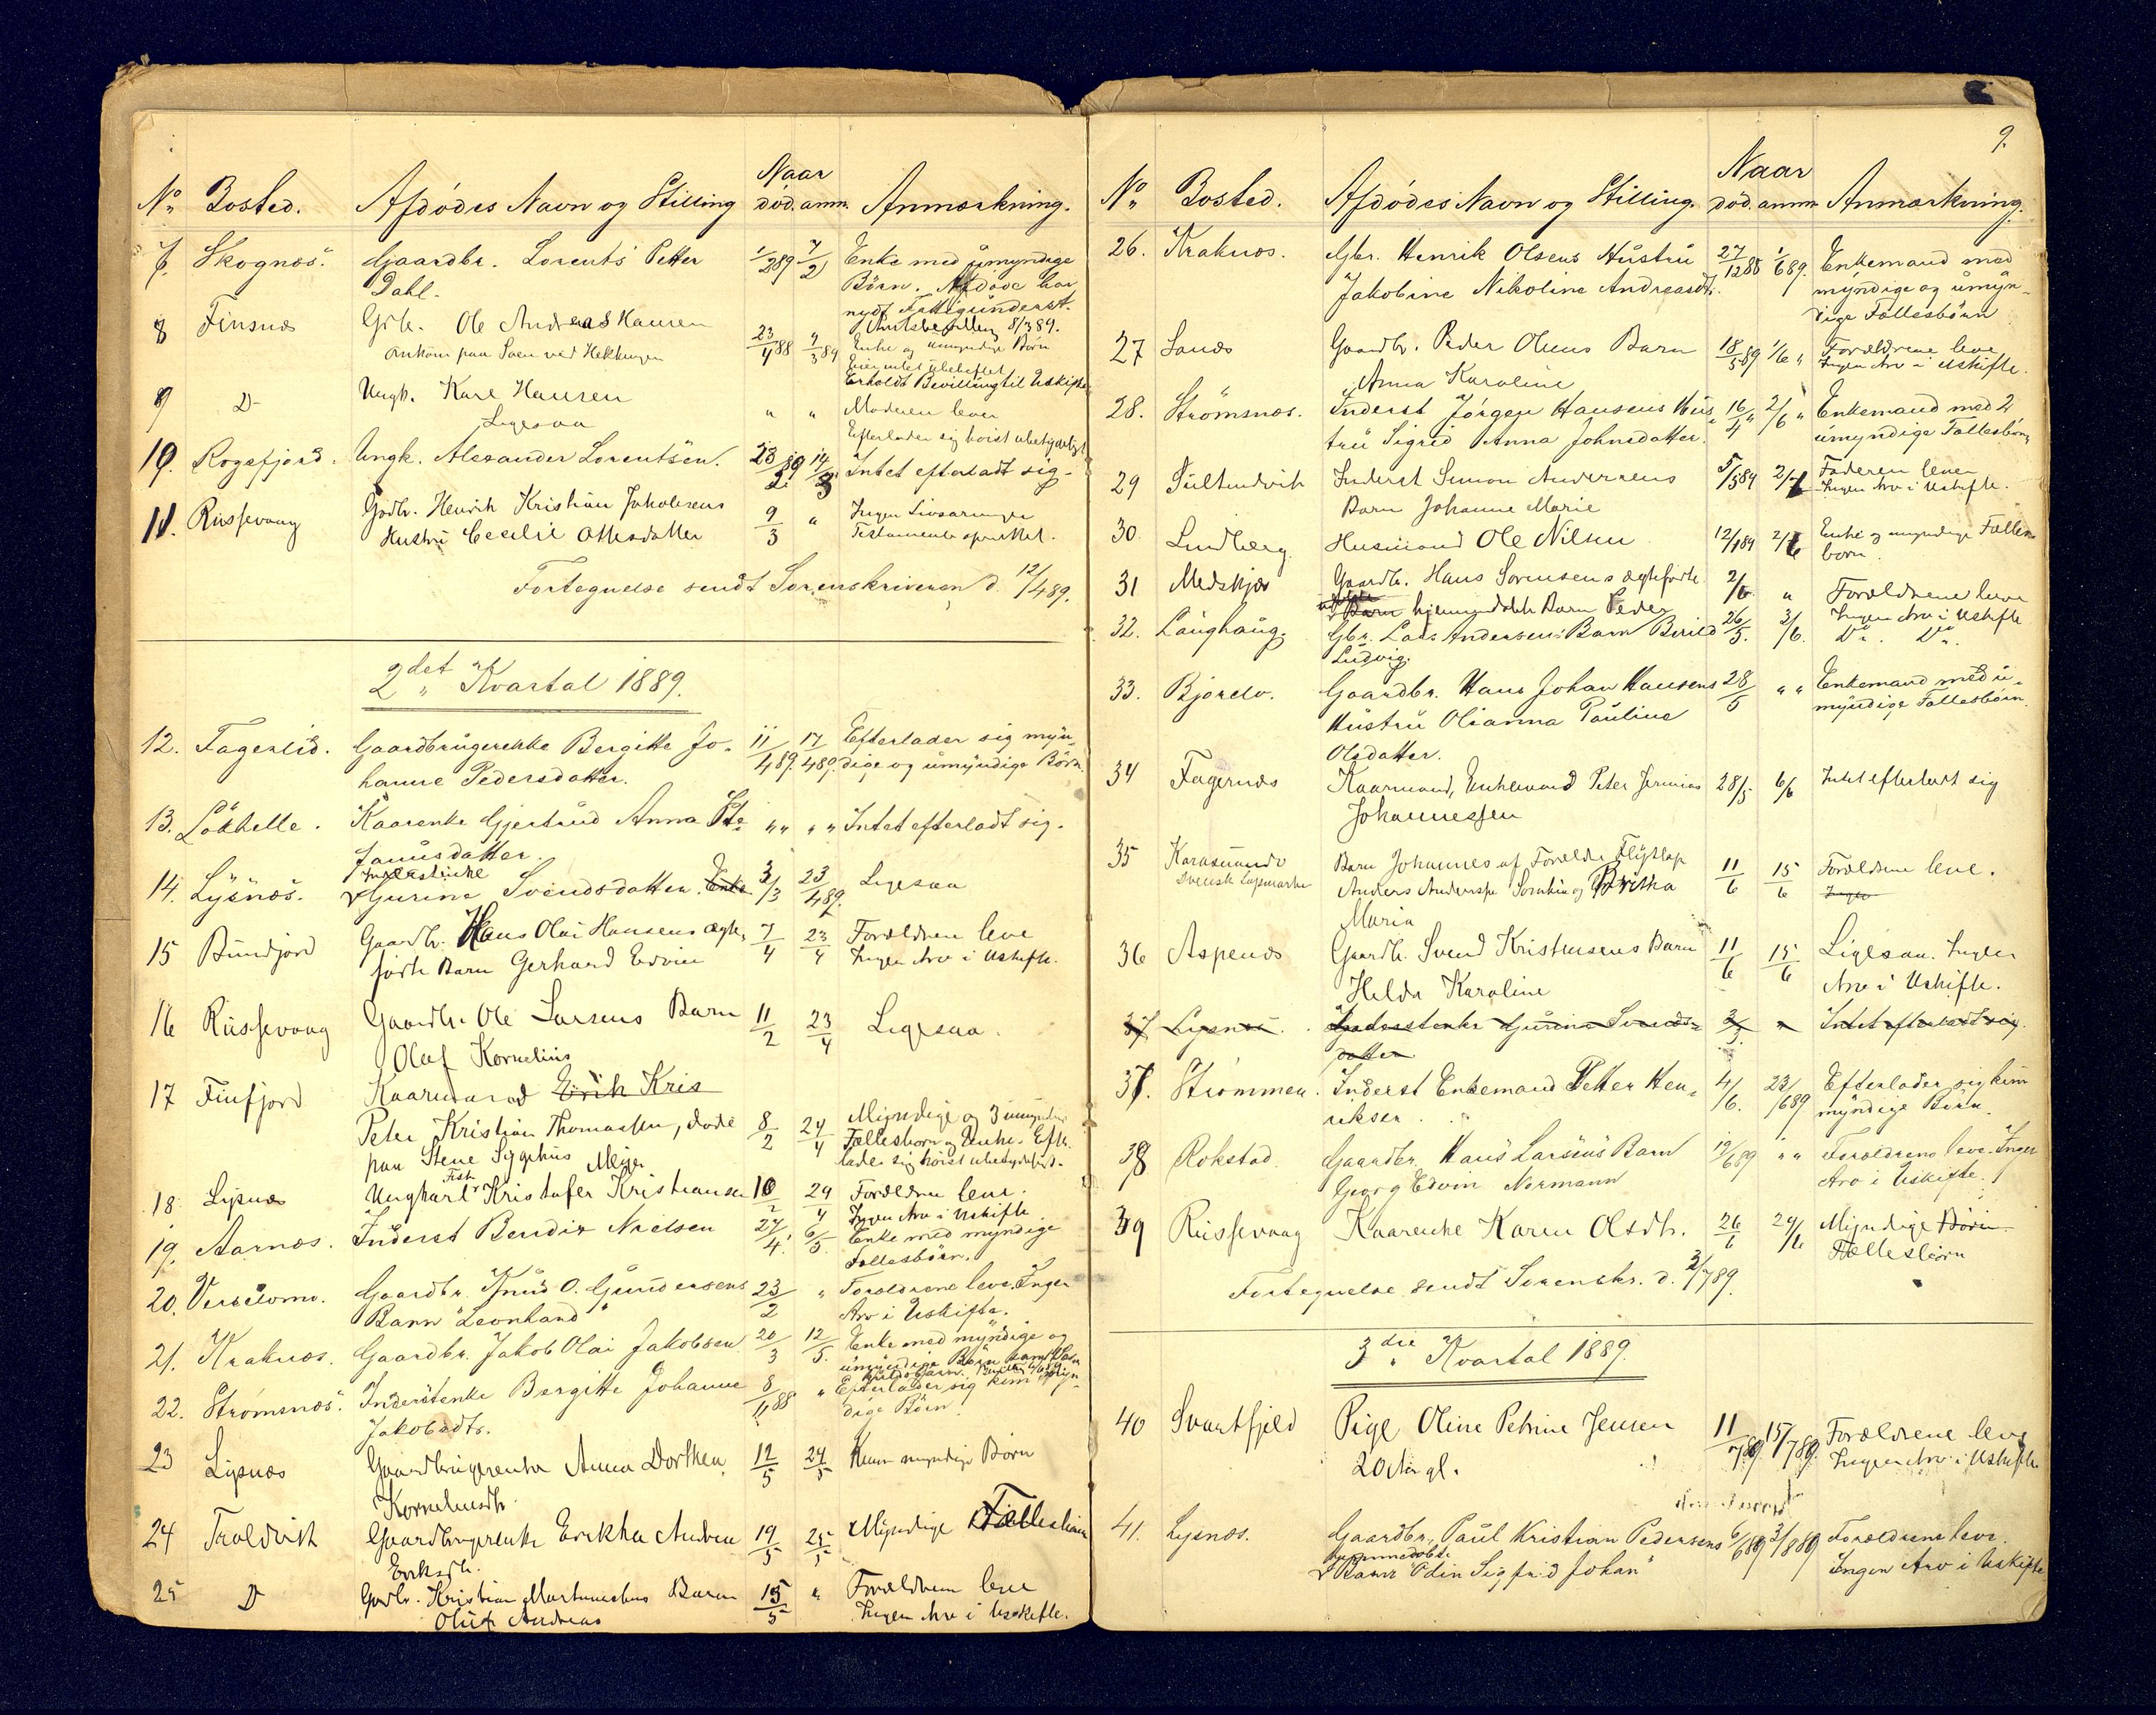 No Bosted. Afdødes Navn og Stilling Naar død. anm. Anmærkning.
7. Skognæs. Gaardbr. Lorents Petter 1/2 89 7/2 Enke med umyndige
Dahl. Børn. Afdøde har
nydt Fattigunderst.
8 Finsnes Grbr. Ole Andreas Hansen 23/4 88 7/3 89 Enke og umyndige Børn
omkom paa Søen ved Hekkingen
Erholdt Bevilling til Uskifte
9 D- Ungk. Karl Hansen " " Moderen lever
Ligesaa Efterlader sig høist ubetydeligt
10. Rogsfjord. Ungk. Alexander Lorentsen. 23/2 89 14/3 Intet efterladt sig.
11. Russevaag Grdbr. Henrik Kristian Jakobsens 9/3 " Ingen Livsarvinger
Hustru Cecilie Ottesdatter Testamente opsættet.
Fortegnelse sendt Sorenskriveren d. 12/4 89.
2det Kvartal 1889.
12. Fagerlid. Gaardbrugerenke Bergitte Jo- 11/4 89. 17/4 89. Efterlader sig myn-
hanne Pedersdatter. dige og umyndige Børn.
13. Løkhelle. Kaarenke Gjertrud Anna Ste- " " " " Intet efterladt sig.
fanusdatter.
Inderstenke
14. Lysnæs. Gurine Svendsdatter. Enke 3/3 23/4 89. Ligesaa
15 Bundjord Gaardbr. Hans Olai Hansens ægte- 7/4 23/4 Forældrene leve
fødte Barn Gerhard Edvin Ingen Arv i Uskifte.
16 Russevaag Gaardbr. Ole Larsens Barn 11/2 23/4 Ligesaa.
Olaf Kornelius
17 Finfjord Kaarmand Erik Kris
Peter Kristian Thomassen, døde 8/2 24/4 Myndige og 3 umyndige
paa Stene Sygehus Fællesbørn og Enke. Efter-
Meyer lader sig høist ubetydeligt.
18. Lysnæs Ungkarl Kristofer Kristiansen 10/2 24/4 Forældrene leve.
Ingen Arv i Uskifte
19. Aarnæs. Inderst Bendix Nielsen 27/4. 6/5. Enke med myndige
Fællesbørn.
20. Gaardbr. Knud O. Gundersens 23/2 " Forældrene leve. Ingen
Barn "Leonhard" Arv i Uskifte.
21. Kraknæs. Gaardbr. Jakob Olai Jakobsen 20/3 12/5. Enke med myndige og
umyndige Børn samt
22. Strømsnæs. Inderstenke Bergitte Johanne 8/11 88 " Efterlader sig kun myn-
Jakobsdtr. dige Børn
23 Lysnæs Gaardbrugerenke Anna Dorthea 12/5 24/5 Kun myndige Børn
Korneliusdtr.
24 Troldvik Gaardbrugerenke Erikka Andrea 19/5 25/5 Myndige Fællesbørn
Eriksdtr.
25 D Grdbr. Kristian Martinussens Barn 15/5 " Forældrene leve
Oluf Andreas Ingen Arv i Uskifte.
9.
No Bosted. Afdødes Navn og Stilling. Naar død. anm Anmærkning.
26. Kraknæs. Gbr. Henrik Olsens Hustru 27/12 88 1/6 89. Enkemand med
Jakobine Nikoline Andreasdtr. myndige og umyn-
dige Fællesbørn
27 Sanæs Gaardbr. Peder Olsens Barn 18/5 89 1/6 " Forældrene leve
Anna Karoline Ingen Arv i Uskifte.
28. Strømsnæs. Inderst Jørgen Hansens Hus- 16/4 " 2/6 " Enkemand med 2
tru Sigrid Anna Johnsdatter. umyndige Fællesbørn
29 Sultendvik Inderst Simon Andersens 5/5 89 2/6 Faderen lever
Barn Johanne Marie Ingen Arv i Uskifte.
30. Lundberg Husmand Ole Nilsen 12/1 89 2/6 Enke og myndige Fælles-
børn.
31 Medskjær Gaardbr. Hans Sørensens ægtefødte 2/6 " Forældrene leve
Barn hjemmedøbte Barn Peder Ingen Arv i Uskifte
32. Laughaug. Gbr. Lars Andersens Barn 26/5. 3/6. Do. Do.
Ludvig.
33. Bjorelv. Gaardbr. Hans Johan Hansens 28/5 " " Enkemand med u-
Hustru Olianna Pauline myndige Fællesbørn.
Olsdatter.
34 Fagernæs Kaarmand, Enkemand Peter Jeremias 28/5 6/6 Intet efterladt sig
Johannessen
35 Karasuando Barn Johannes af Forældre Flytlap 11/6 15/6 Forældrene leve.
Svensk Lapmarke Anders Andersen og Britha Ingen
Maria
36 Aspenæs Gaardbr. Svend Kristensens Barn 11/6 15/6 Ligesaa. Ingen
Helda Karoline Arv i Uskifte.
37 Lysnæs. Inderstenke Gurine Svends- 3/3. " Intet efterladt sig.
datter
37. Strømmen. Inderst Enkemand Petter Hen- 4/6. 23/6 89 Efterlader sig kun
riksen. myndige Børn.
38 Rokstad. Gaardbr. Hans Larsens Barn 19/6 89 " " Forældrene leve. Ingen
Georg Edvin Normann Arv i Uskifte.
39 Russevaag Kaarenke Karen Olsdtr. 26/6 29/6 Myndige Børn
Fællesbørn
Fortegnelse sendt Sorenskr. d. 2/7 89.
3die Kvartal 1889.
40 Svartfjeld Pige Oline Petrine Jensen 11/7 89. 15/7 89. Forældrene leve
20 Aar gl. Ingen Arv i Uskifte.
41. Lysnæs. Gaardbr. Paul Kristian Pedersens 6/6 89 3/8 89 Forældrene leve.
hjemmedøbte
Barn "Odin Sigfrid Johan" Ingen Arv i Uskifte